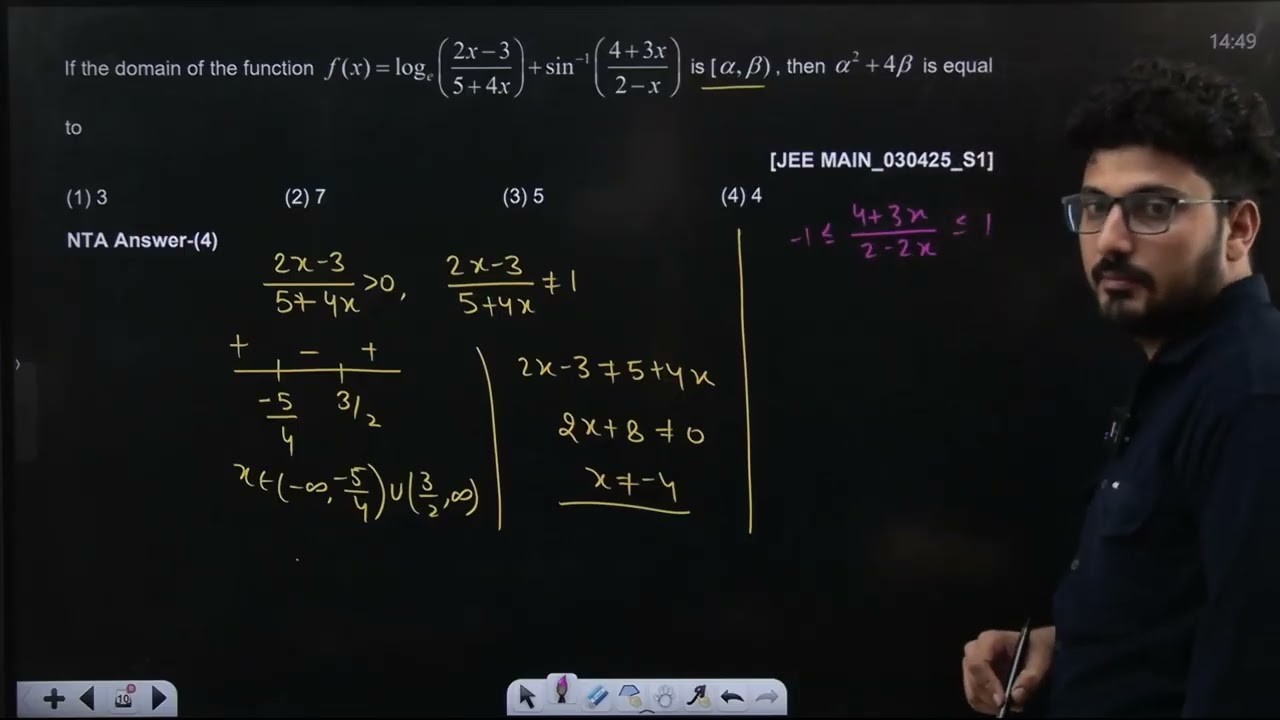 14:49
If the domain of the function f(x) = logₑ((2x−3)/(5+4x)) + sin⁻¹((4+3x)/(2−x)) is [α, β), then α² + 4β is equal
to
[JEE MAIN_030425_S1]
(1) 3 (2) 7 (3) 5 (4) 4
NTA Answer-(4)
-1 ≤ (4+3x)/(2-2x) ≤ 1
(2x-3)/(5+4x) >0, (2x-3)/(5+4x) ≠ 1
+ - +
-5/4 3/2
2x-3 ≠ 5+4x
2x+8 ≠ 0
x ∈ (-∞, -5/4) ∪ (3/2, ∞)
x ≠ -4
10